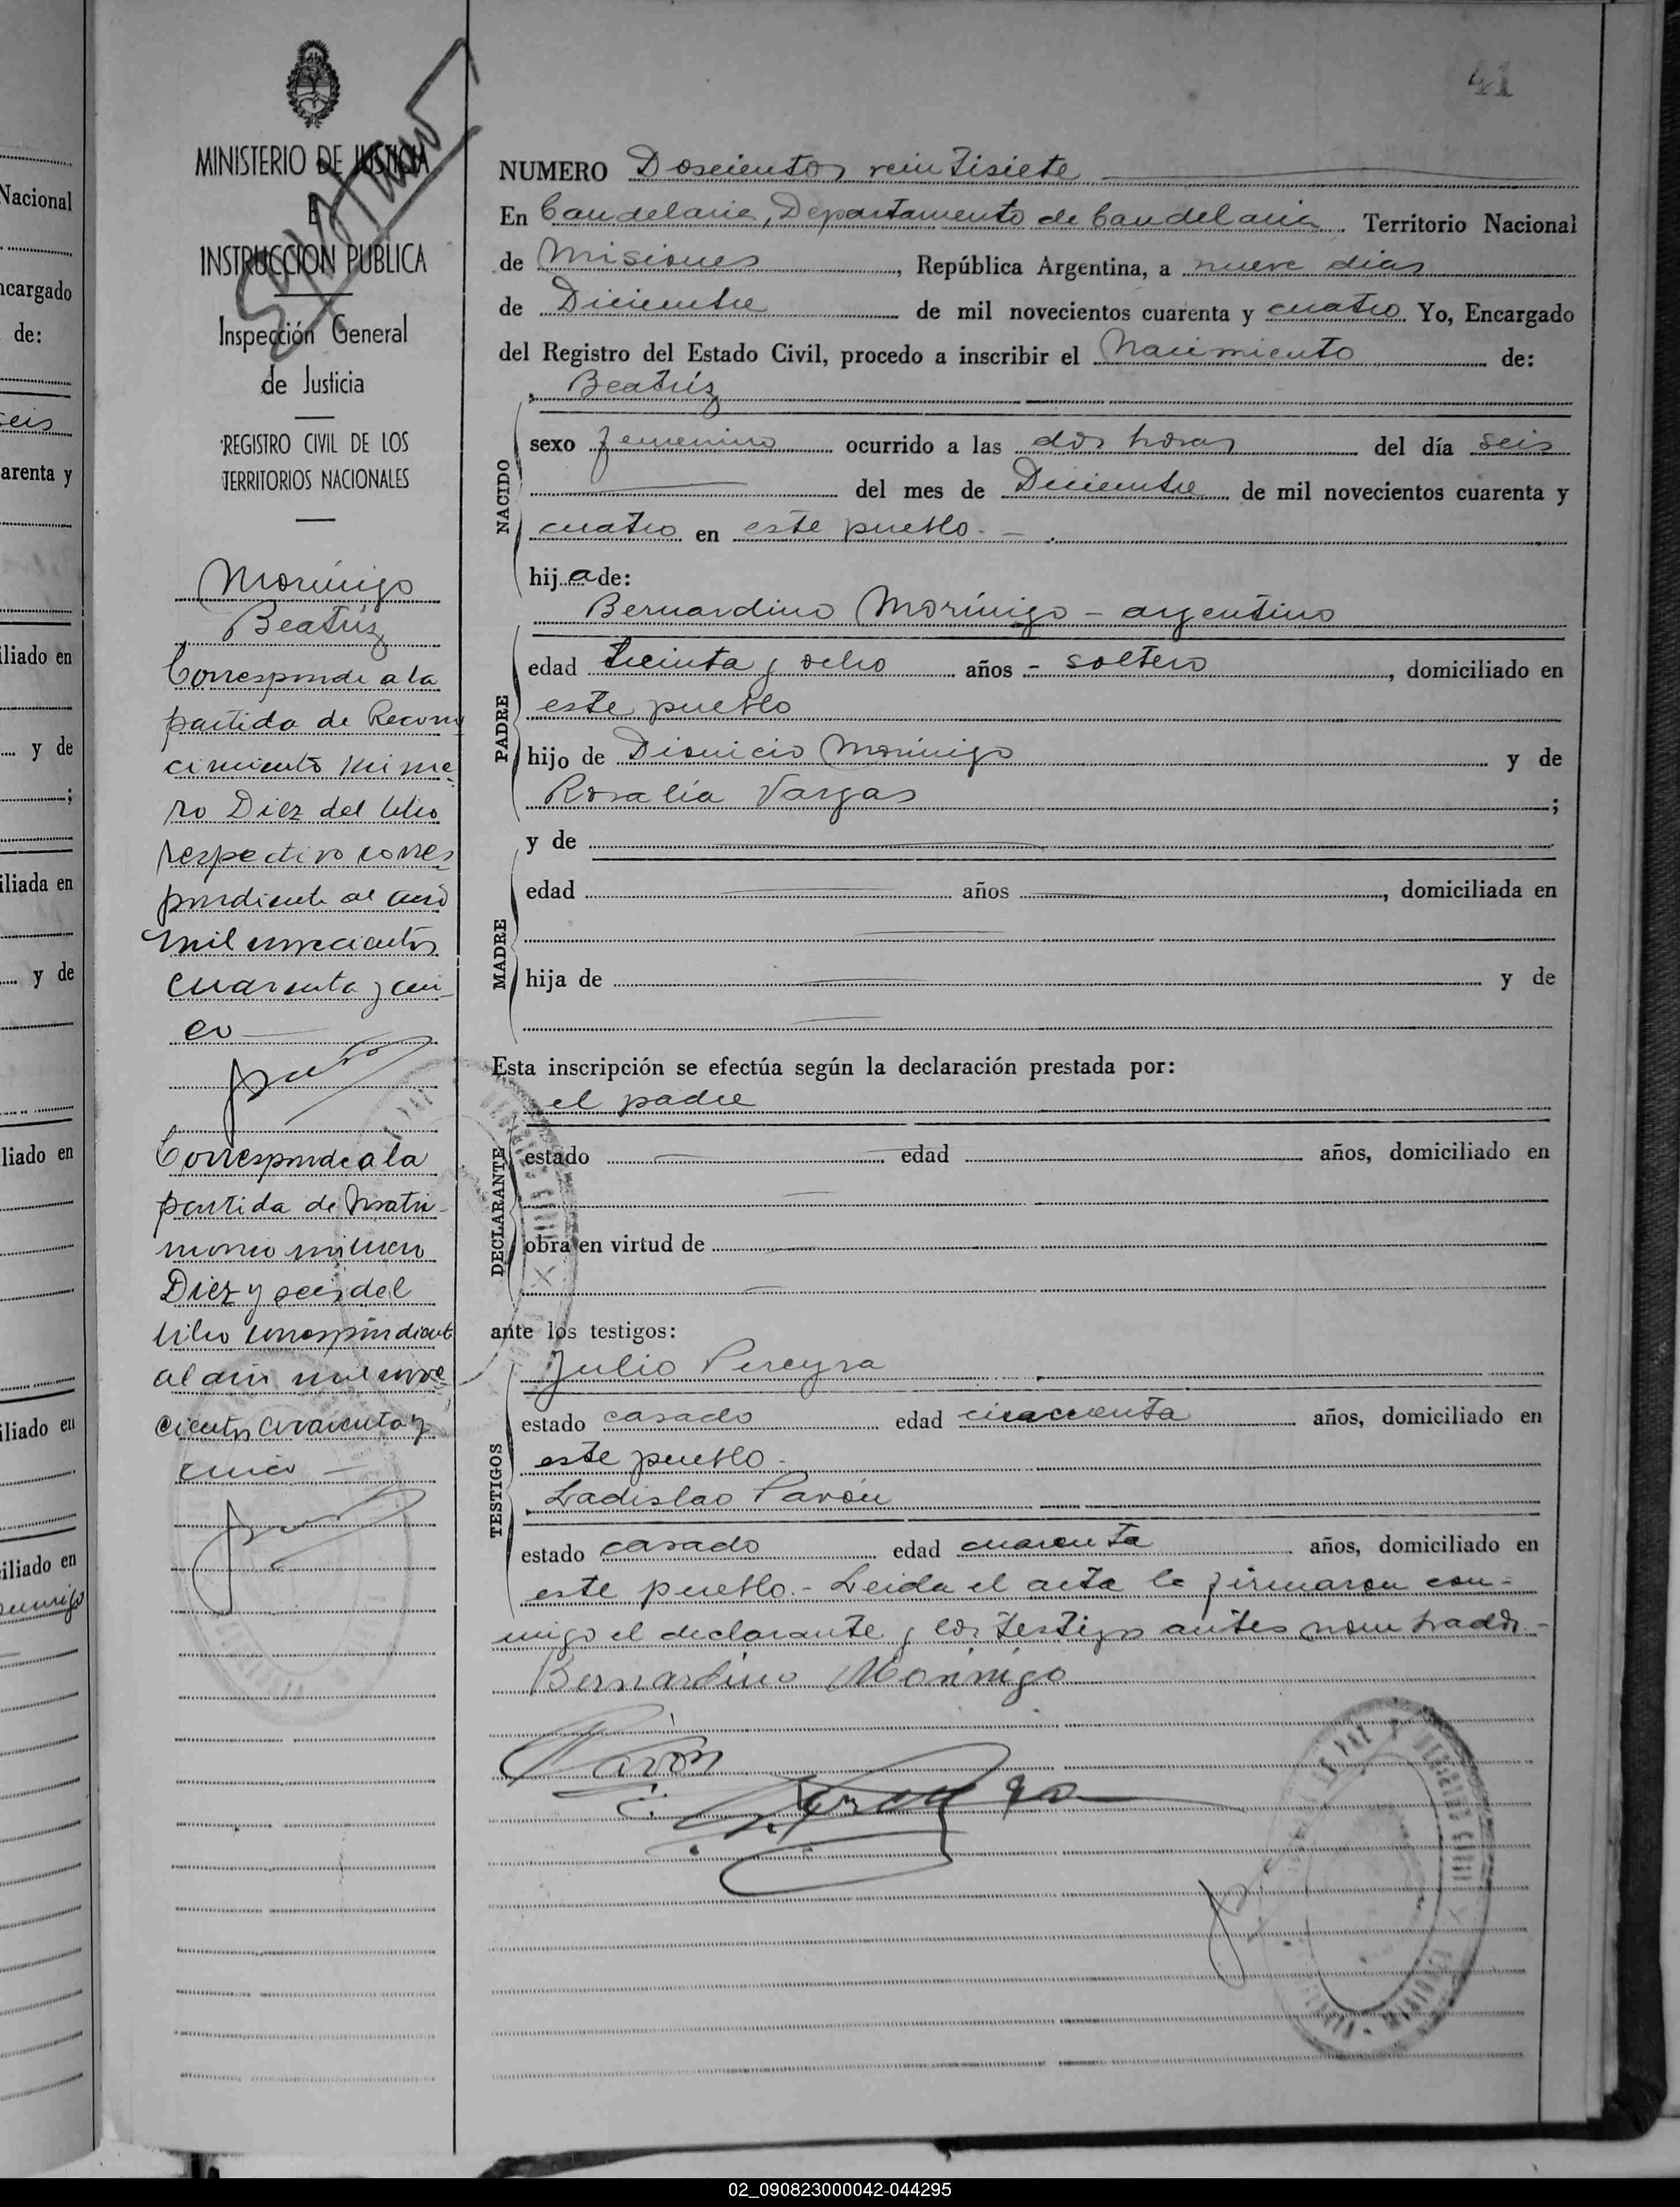 41
MINISTERIO DE JUSTICIA
E
INSTRUCCION PUBLICA
Inspección General
de Justicia
REGISTRO CIVIL DE LOS
TERRITORIOS NACIONALES
Morínigo
Beatríz
Corresponde a la
partida de Recono
cimiento núme
ro Diez del libro
respectivo corres
pondiente al año
mil novecientos
cuarenta y cin-
co
Corresponde a la
partida de Matri-
monio número
Diez y seis del
libro correspondient
al año mil nove
cientos cuarenta y
cinco
NUMERO Doscientos veintisiete
En Candelaria, Departamento de Candelaria Territorio Nacional
de Misiones, República Argentina, a nueve días
de Diciembre de mil novecientos cuarenta y cuatro Yo, Encargado
del Registro del Estado Civil, procedo a inscribir el Nacimiento de:
Beatríz
NACIDO
sexo femenino ocurrido a las dos horas del día seis
del mes de Diciembre de mil novecientos cuarenta y
cuatro en este pueblo.-
hija de:
Bernardino Morínigo - argentino
PADRE
edad treinta y ocho años - soltero, domiciliado en
este pueblo
hijo de Dionicio Morínigo y de
Rosalía Vargas;
y de
MADRE
edad años, domiciliada en
hija de y de
Esta inscripción se efectúa según la declaración prestada por:
el padre
DECLARANTE
estado edad años, domiciliado en
obra en virtud de
ante los testigos:
Julio Pereyra
TESTIGOS
estado casado edad cincuenta años, domiciliado en
este pueblo-
Ladislao Pavón
estado casado edad cuarenta años, domiciliado en
este pueblo.- Leida el acta la firmaron con-
migo el declarante y los testigos antes nombrados.-
Bernardino Morínigo
Pavón
02_090823000042-044295